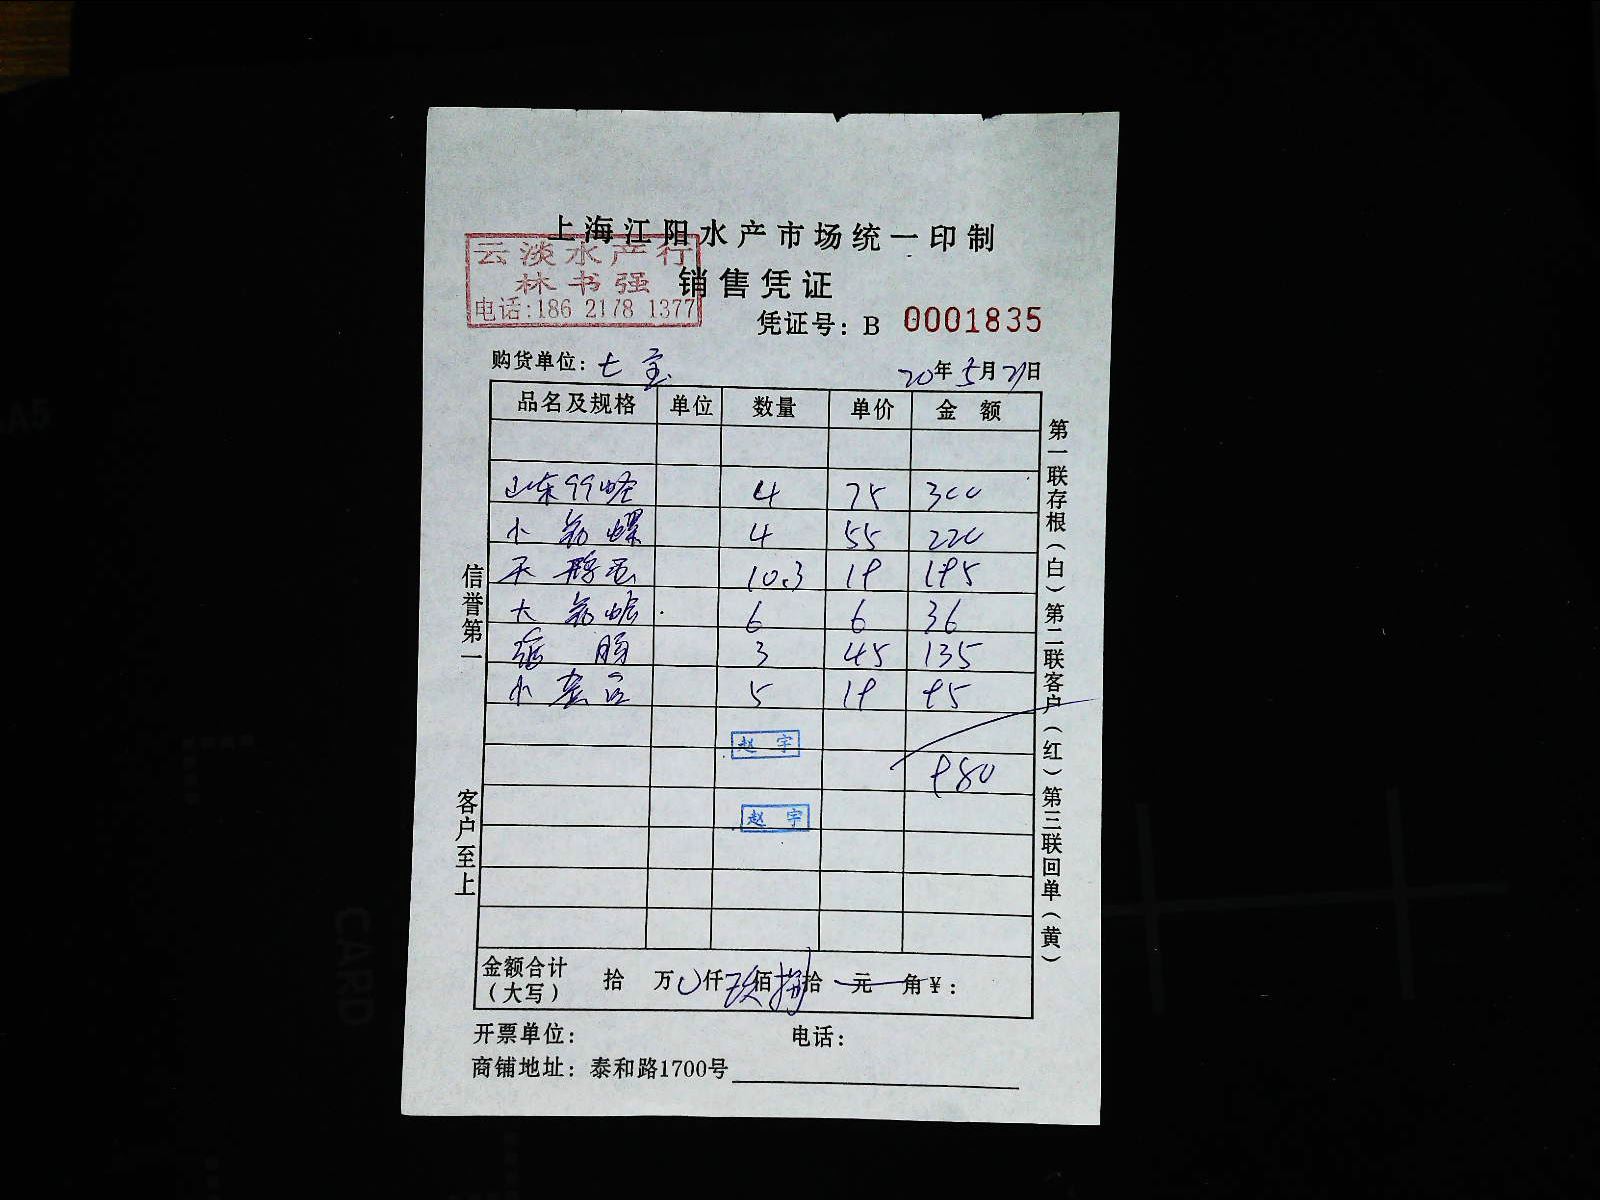 上海江阳水产市场统一印制
云淡水产行
林书强
电话:186 2178 1377
销售凭证
凭证号: B 0001835
购货单位: 七宝 20年5月21日
品名及规格 单位 数量 单价 金额
山东99蛏 4 75 300
小 螺 4 55 220
天鹅蛋 10.3 19 195
大 蛤 6 6 36
肠 3 45 135
小 5 19 95
赵宇
980
赵宇
金额合计(大写) 拾 万 0仟 玖佰 捌拾 元 角¥:
开票单位: 电话:
商铺地址: 泰和路1700号
信誉第一
客户至上
第一联存根(白)第二联客户(红)第三联回单(黄)